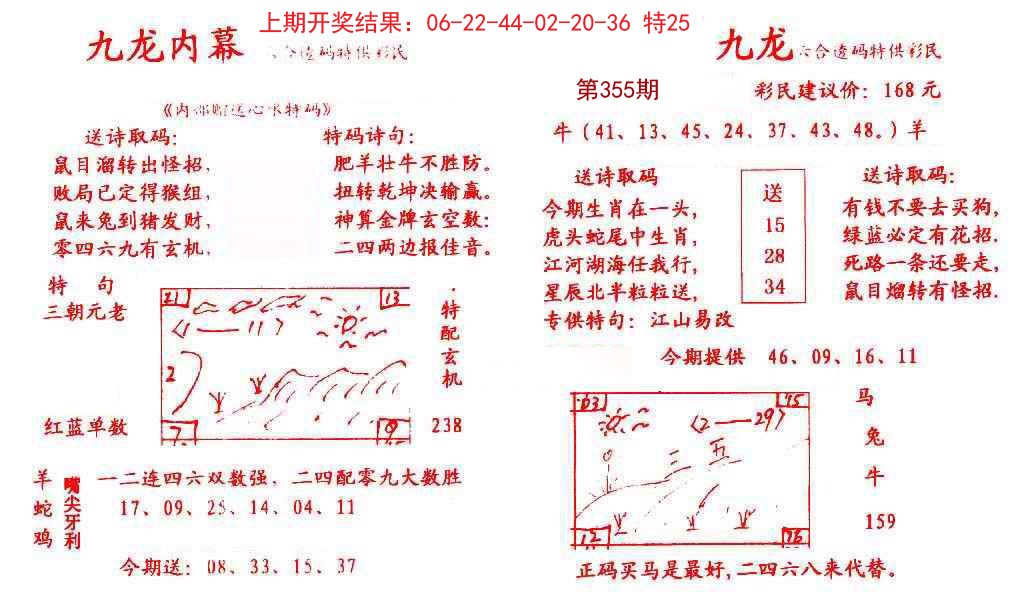 上期开奖结果：06-22-44-02-20-36 特25
九龙内幕
六合透码特供彩民
《内部赠送心水特码》
送诗取码：
鼠目溜转出怪招，
败局已定得猴组，
鼠来兔到猪发财，
零四六九有玄机，
特码诗句：
肥羊壮牛不胜防。
扭转乾坤决输赢。
神算金牌玄空数：
二四两边报佳音。
特 句
三朝元老
红蓝单数
21
13
《1——11》
2
7
9
特配玄机
238
羊蛇鸡
嘴尖牙利
一二连四六双数强，二四配零九大数胜
17、09、25、14、04、11
今期送：08、33、15、37
九龙
六合透码特供彩民
第355期
彩民建议价：168元
牛（41、13、45、24、37、43、48。）羊
送诗取码
今期生肖在一头，
虎头蛇尾中生肖，
江河湖海任我行，
星辰北半粒粒送，
专供特句：江山易改
送
15
28
34
送诗取码：
有钱不要去买狗，
绿蓝必定有花招.
死路一条还要走，
鼠目熘转有怪招.
今期提供 46、09、16、11
03
15
《2——29》
三五
12
76
马
兔
牛
159
正码买马是最好，二四六八来代替。